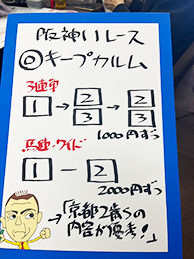 阪神11レース
◎キープカルム
3連単
1→2 3→2 3
1000円ずつ
馬連・ワイド
1－2
2000円ずつ
→「京都2歳Sの
内容が優秀!」